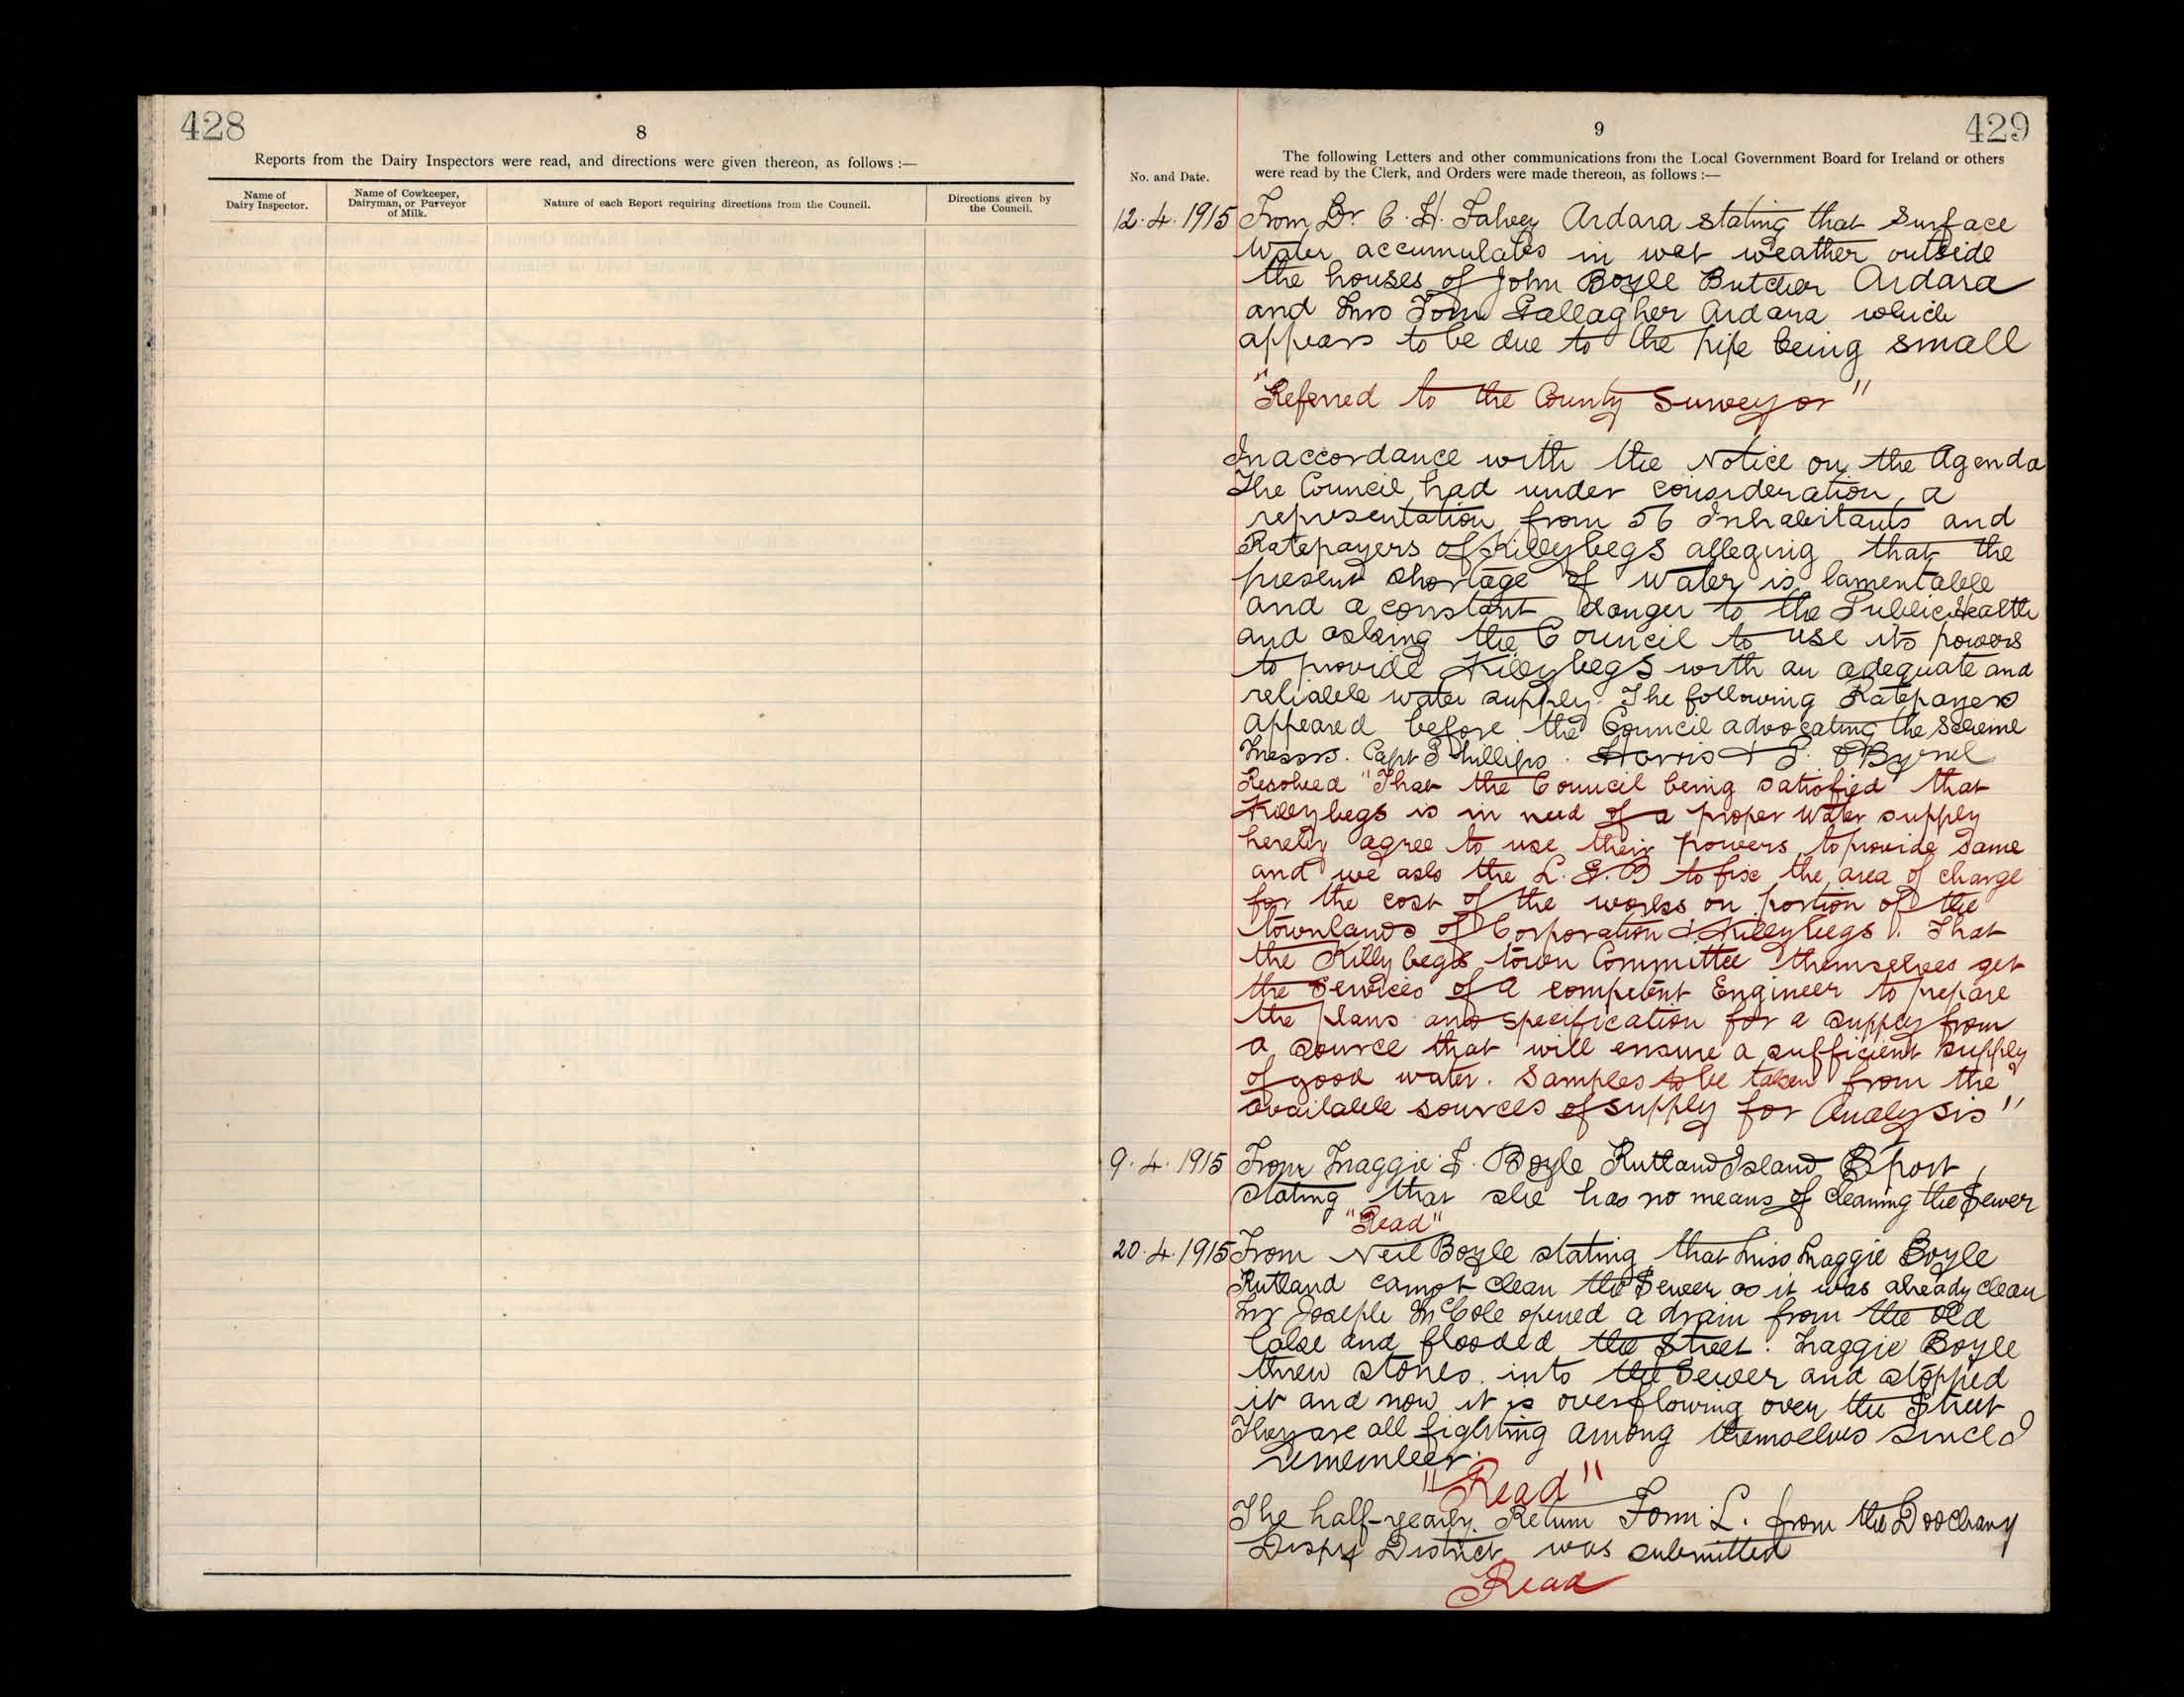 428
8
Reports from the Dairy Inspectors were read, and directions were given thereon, as follows :—
Name of Dairy Inspector.
Name of Cowkeeper, Dairyman, or Purveyor of Milk.
Nature of each Report requiring directions from the Council.
Directions given by the Council.
429
9
The following Letters and other communications from the Local Government Board for Ireland or others
No. and Date.
were read by the Clerk, and Orders were made thereon, as follows :—
12.4.1915 From Dr. C. H. Falvey Ardara stating that surface
water accumulates in wet weather outside
the houses of John Boyle Butcher Ardara
and Mrs Tom Gallagher Ardara which
appears to be due to the pipe being small
"Referred to the County Surveyor"
In accordance with the Notice on the Agenda
The Council had under consideration, a
representation from 56 Inhabitants and
Ratepayers of Killybegs alleging that the
present shortage of water is lamentable
and a constant danger to the Public Health
and asking the Council to use its powers
to provide Killybegs with an adequate and
reliable water supply. The following Ratepayers
appeared before the Council advocating the Scheme
Messrs. Capt Phillips. Harris & O'Byrne
Resolved "That the Council being satisfied that
Killybegs is in need of a proper water supply
hereby agree to use their powers to provide same
and we ask the L.G.B to fix the area of charge
for the cost of the works on portion of the
townlands of Corporation & Killybegs. That
the Killybegs town Committee themselves get
the Services of a competent Engineer to prepare
the plans and specification for a supply from
a source that will ensure a sufficient supply
of good water. Samples to be taken from the
available sources of supply for Analysis"
9.4.1915 From Maggie J. Boyle Rutland Island B'port
stating that she has no means of cleaning the Sewer
"Read"
20.4.1915 From Neil Boyle stating that Miss Maggie Boyle
Rutland cannot clean the Sewer as it was already clean
Mr Joseph McCole opened a drain from the old
and flooded the Street. Maggie Boyle
threw stones into the Sewer and stopped
it and now it is overflowing over the Street
They are all fighting among themselves since I
remember.
"Read"
The half-yearly Return Form L. from the Doochary
Dispy District was submitted
Read